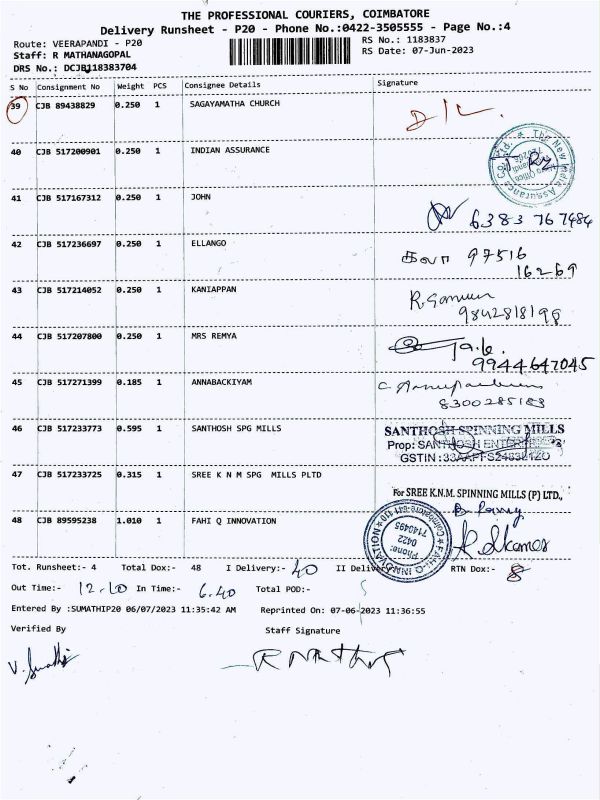 THE PROFESSIONAL COURIERS, COIMBATORE
Delivery Runsheet - P20 - Phone No.:0422-3505555 - Page No.:4
Route: VEERAPANDI - P20 RS No.: 1183837
Staff: R MATHANAGOPAL RS Date: 07-Jun-2023
DRS No.: DCJB118383704
S No Consignment No Weight PCS Consignee Details Signature
39 CJB 89438829 0.250 1 SAGAYAMATHA CHURCH D/L.
40 CJB 517200901 0.250 1 INDIAN ASSURANCE
41 CJB 517167312 0.250 1 JOHN
6383 767484
42 CJB 517236697 0.250 1 ELLANGO
கலா 97516
16269
43 CJB 517214052 0.250 1 KANIAPPAN
9842818198
44 CJB 517207800 0.250 1 MRS REMYA
9944647045
45 CJB 517271399 0.185 1 ANNABACKIYAM
8300285183
46 CJB 517233773 0.595 1 SANTHOSH SPG MILLS SANTHOSH SPINNING MILLS
Prop: SANTHOSH ENTERPRISES
GSTIN :
47 CJB 517233725 0.315 1 SREE K N M SPG MILLS PLTD
For SREE K.N.M. SPINNING MILLS (P) LTD.,
48 CJB 89595238 1.010 1 FAHI Q INNOVATION
FAHI-Q INNOVATION Coimbatore-641
Phone:
0422
7140495
Tot. Runsheet:- 4 Total Dox:- 48 I Delivery:- 40 II Delivery RTN Dox:- 8
Out Time:- 12.10 In Time:- 6.40 Total POD:-
Entered By :SUMATHIP20 06/07/2023 11:35:42 AM Reprinted On: 07-06-2023 11:36:55
Verified By Staff Signature
V. Sumathi